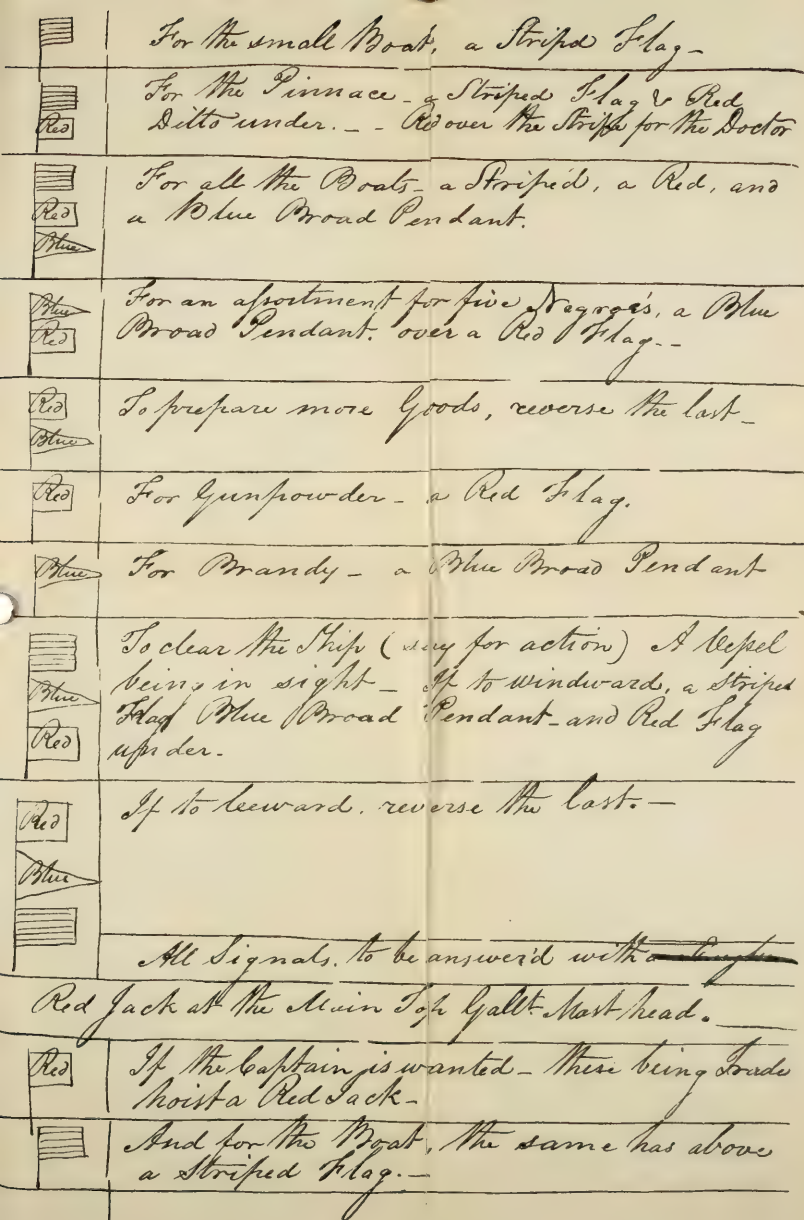 For the small Boat, a Stripd Flag -
For the Pinnace - a Striped Flag & Red
Red
Ditto under. - - Red over the Stripe for the Doctor
For all the Boats - a Striped, a Red, and
Red
a Blue Broad Pendant.
Blue
Blue
For an assortment for five Negroe's, a Blue
Red
Broad Pendant. over a Red Flag. - -
Red
To prepare more Goods, reverse the last -
Blue
Red
For Gunpowder - a Red Flag.
Blue
For Brandy - a Blue Broad Pendant
To clear the Ship ( say for action) A Vessel
being in sight - If to windward, a striped
Blue
Flag Blue Broad Pendant - and Red Flag
Red
under.
Red
If to leeward. reverse the last. -
Blue
All Signals. to be answer'd with
Red Jack at the Main Top Gallt. Mast head.
Red
If the Captain is wanted - there being Trade
hoist a Red Jack -
And for the Boat, the same has above
a Striped Flag. -